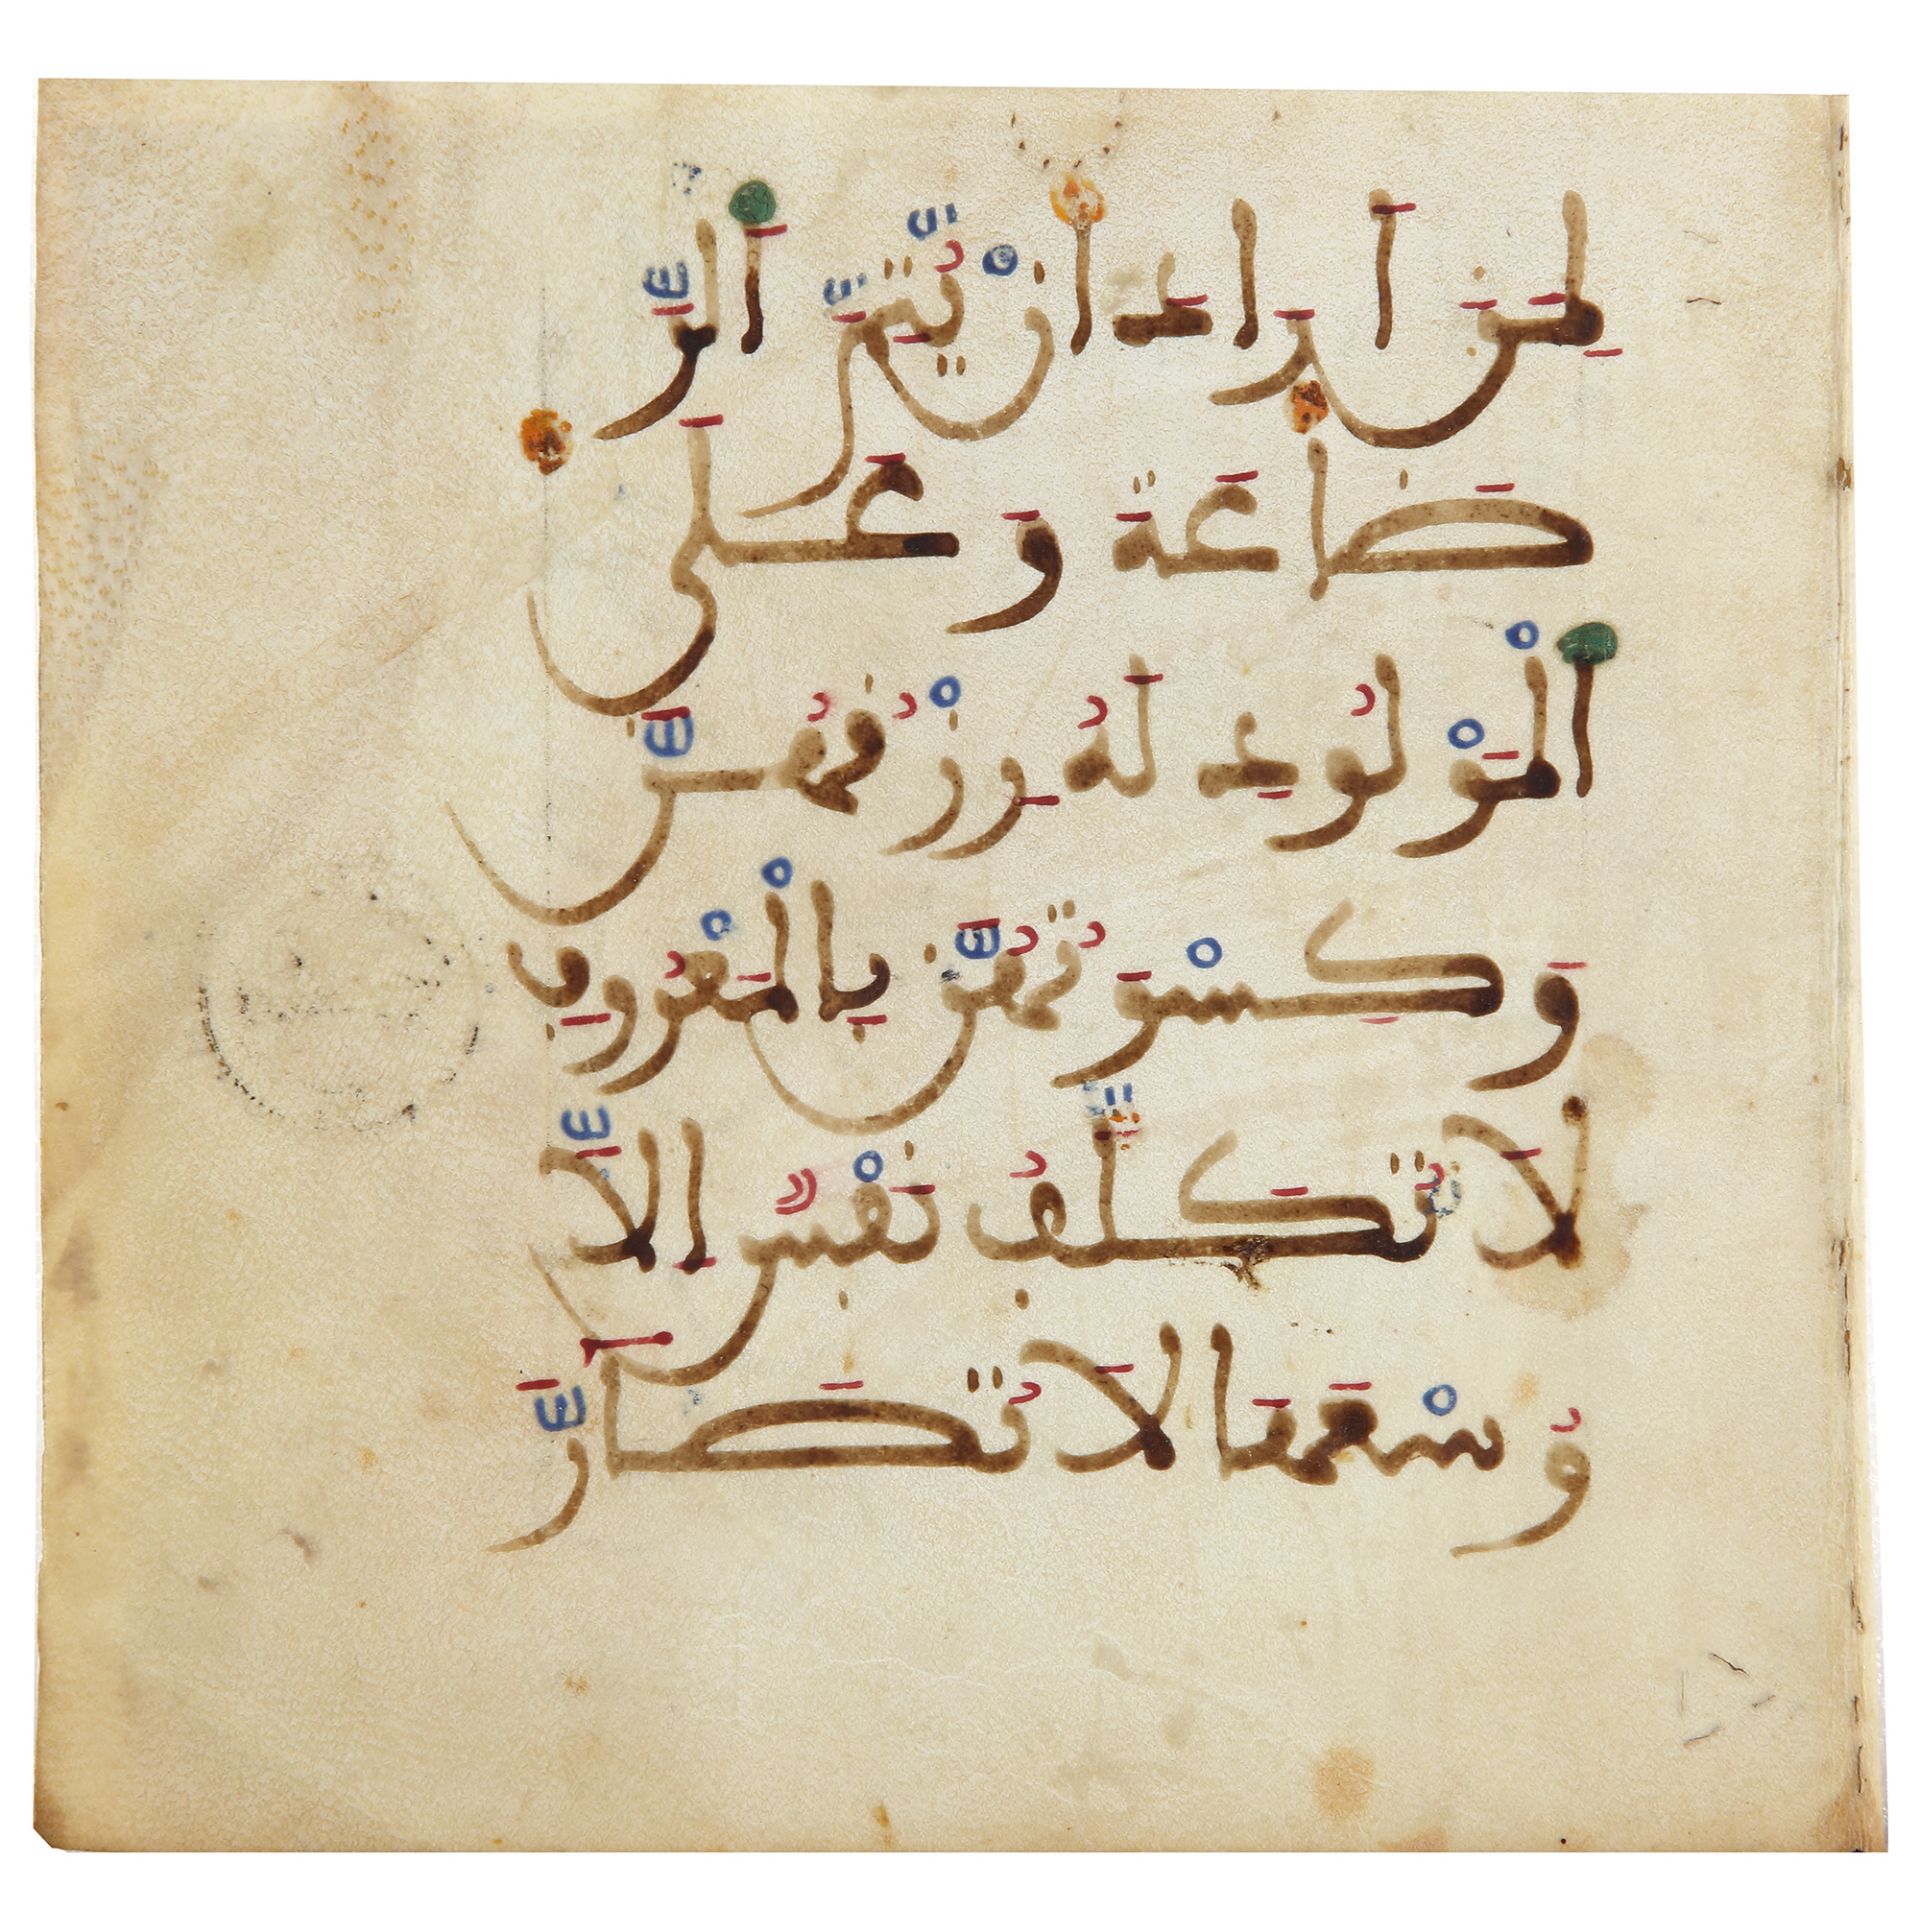 لِمَنَ اَرَادَ أَنْ يُّتِمَّ اَلرَّ
ضَاعَةَ وَعَلَى
اَلْمَوْلُودِ لَهُ رِزْقُهُنَّ
وَكِسْوَتُهُنَّ بِالْمَعْرُوفِ
لَا تُكَلَّفُ نَفْسٌ اِلَّا
وُسْعَهَا لَا تُضَارَّ